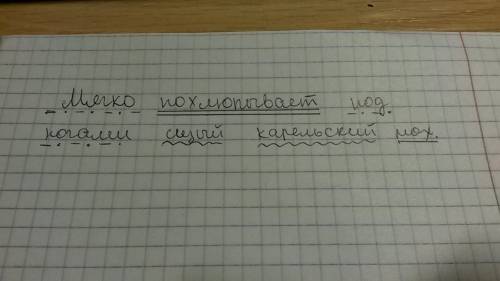 Мягко похлюпывает под
ногами сизый карельский мох.